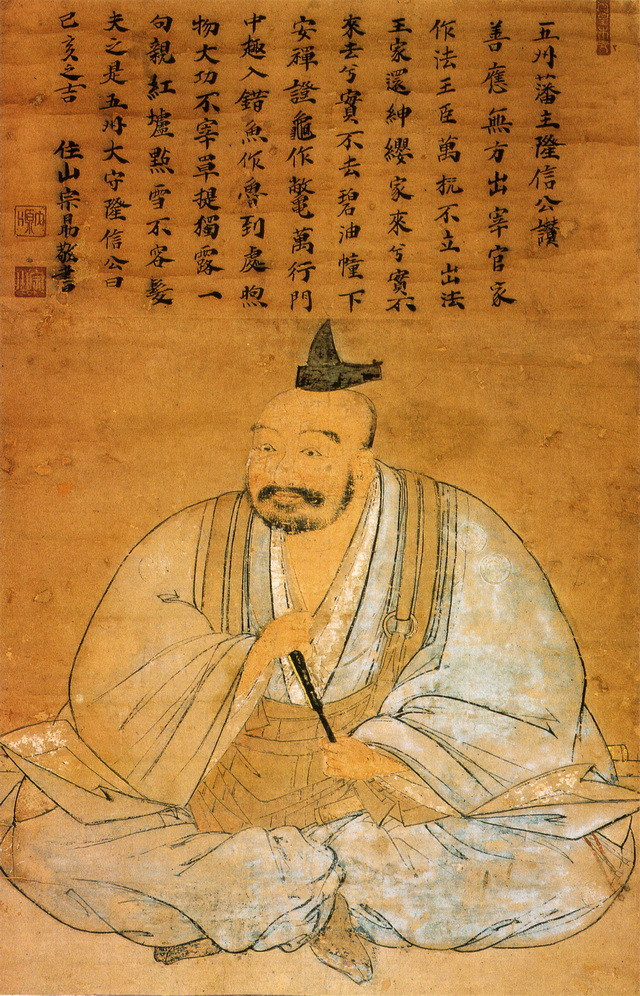 五州藩主隆信公讃
善應無方出宰官家
作法王臣萬不立出法
王家還紳纓家來兮實不
來去兮實不去碧油幢下
安禪證龜作鼈萬行門
中趣入錯魚作魯到處煦
物大功不宰單提獨露一
句親紅爐點雪不容髪
夫之是五州大守隆信公曰
己亥之吉 住山宗敬書